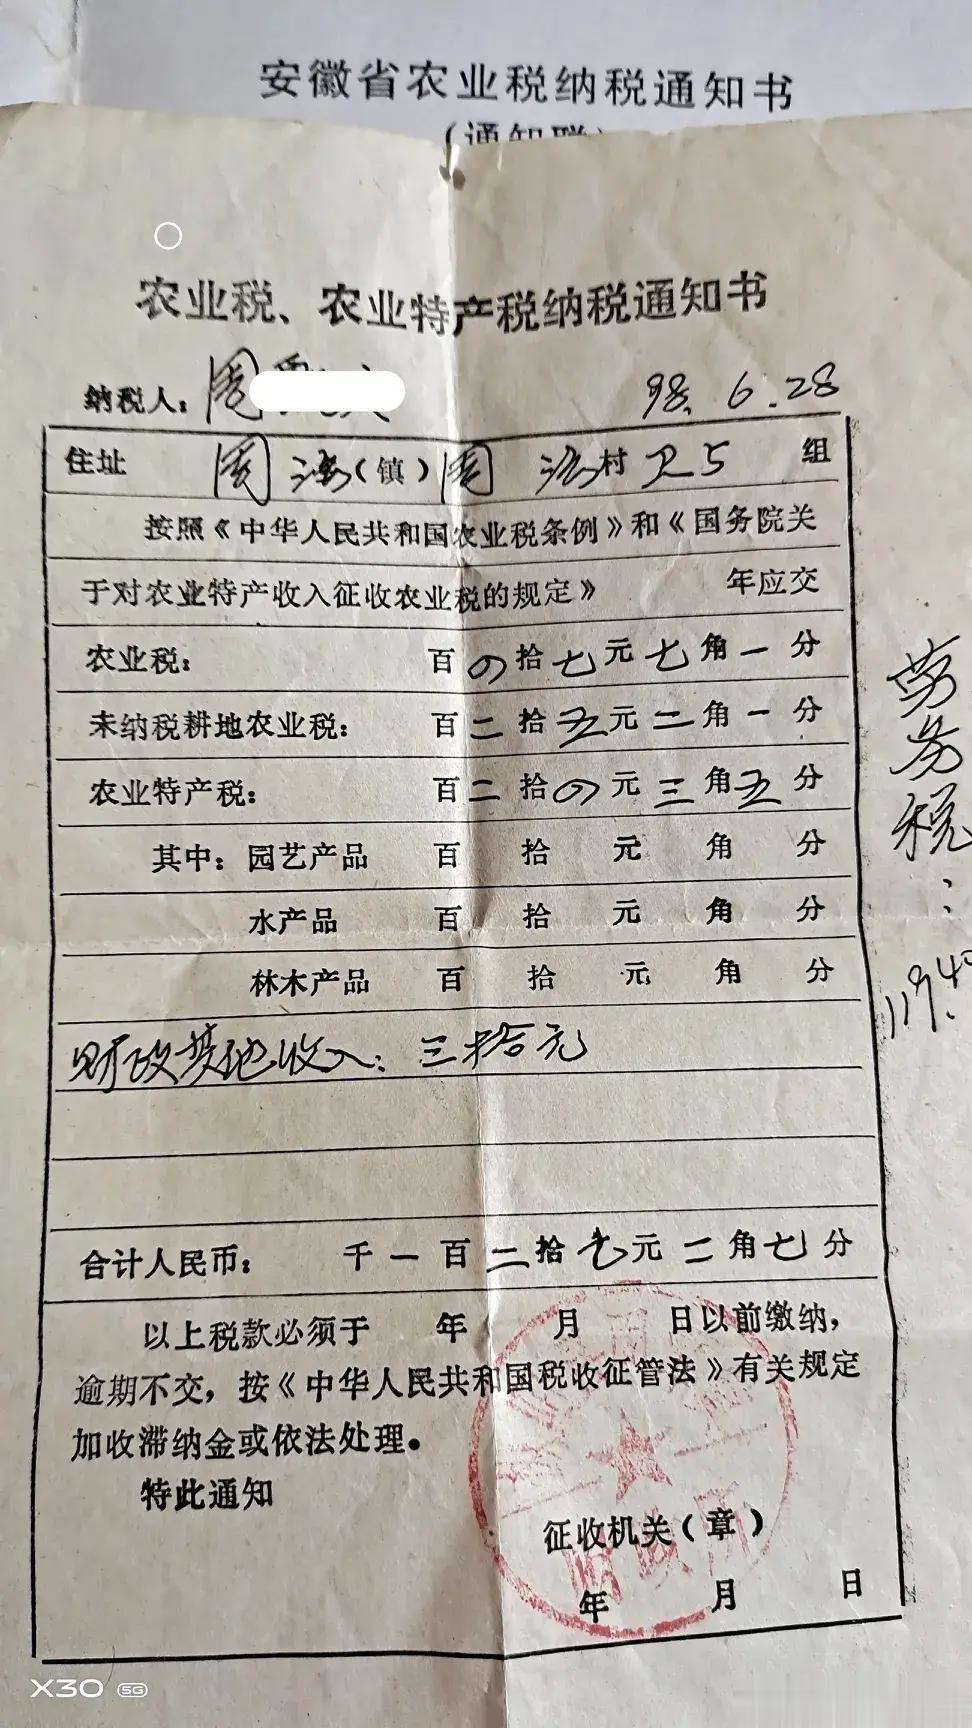 安徽省农业税纳税通知书
(通知联)
农业税、农业特产税纳税通知书
纳税人: 周 98.6.28
住址 周 (镇) 周 村 组
按照《中华人民共和国农业税条例》和《国务院关
于对农业特产收入征收农业税的规定》 年应交
农业税: 百四拾七元七角一分
未纳税耕地农业税: 百二拾五元二角一分
农业特产税: 百二拾四元三角五分
其中: 园艺产品 百 拾 元 角 分
水产品 百 拾 元 角 分
林木产品 百 拾 元 角 分
财政基地收入: 三拾元
合计人民币: 千一百二拾七元二角七分
以上税款必须于 年 月 日以前缴纳,
逾期不交, 按《中华人民共和国税收征管法》有关规定
加收滞纳金或依法处理。
特此通知
征收机关 (章)
年 月 日
劳务税:
X30 5G